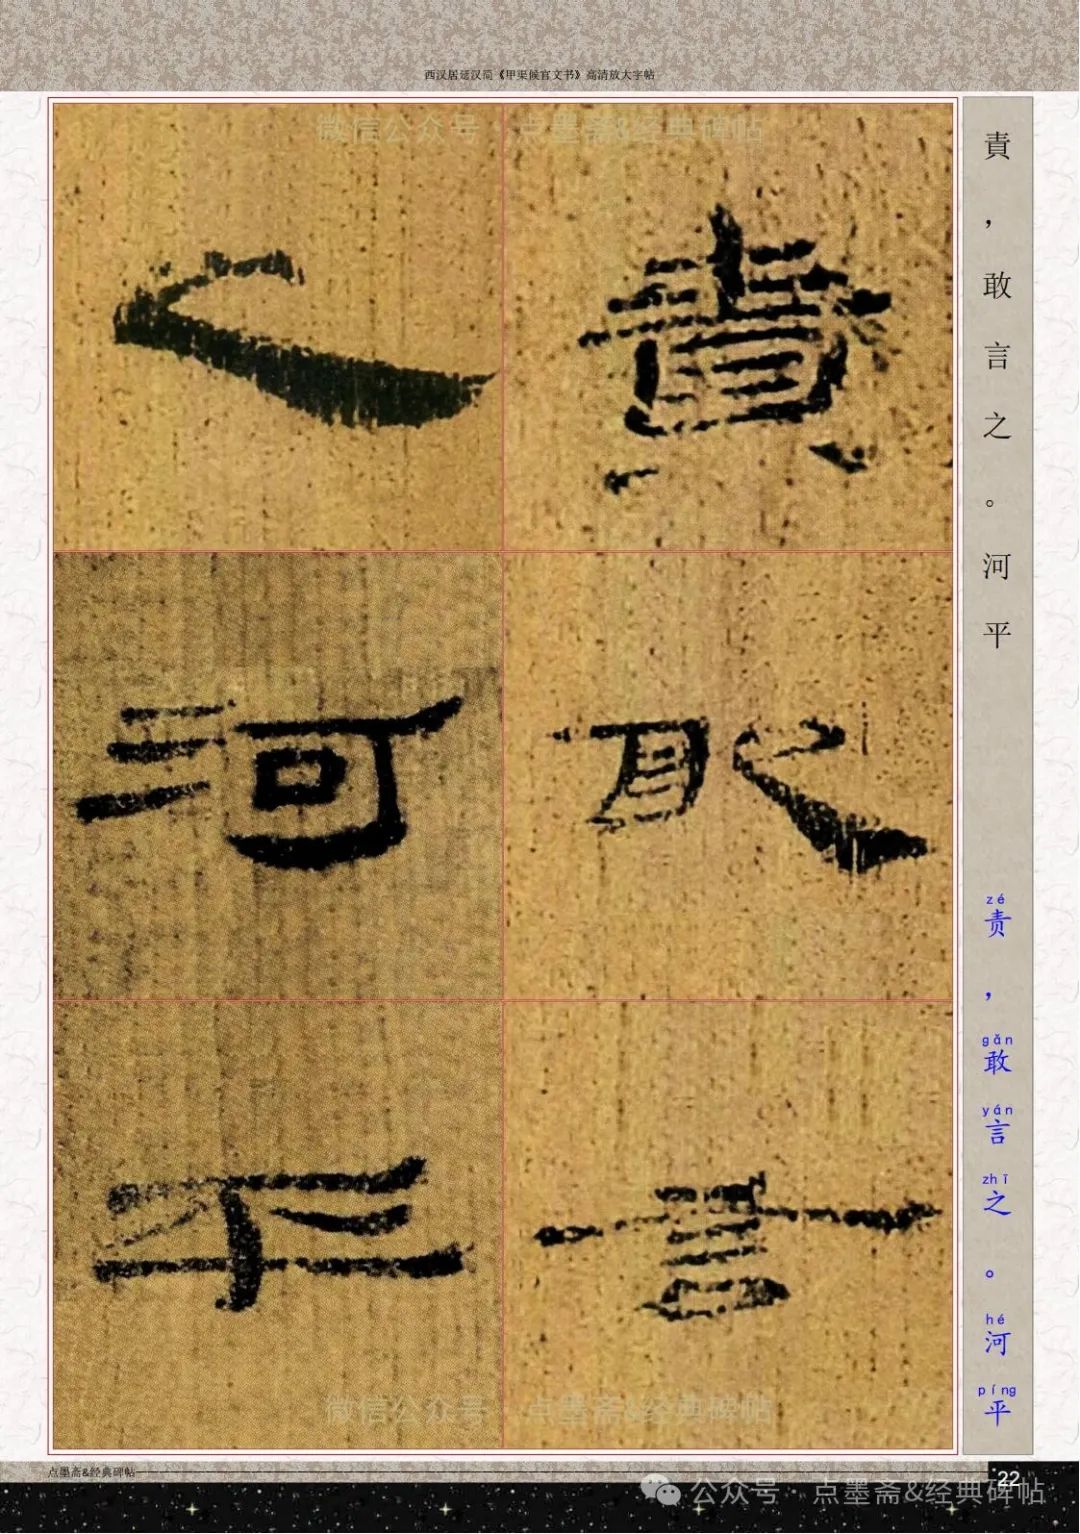 西汉居延汉简《甲渠候官文书》高清放大字帖
微信公众号 点墨斋&经典碑帖
責
敢
言
之
河
平
責，敢言之。河平
zé gǎn yán zhī hé píng
责，敢言之。河平
微信公众号 点墨斋&经典碑帖
点墨斋&经典碑帖
22
公众号·点墨斋&经典碑帖